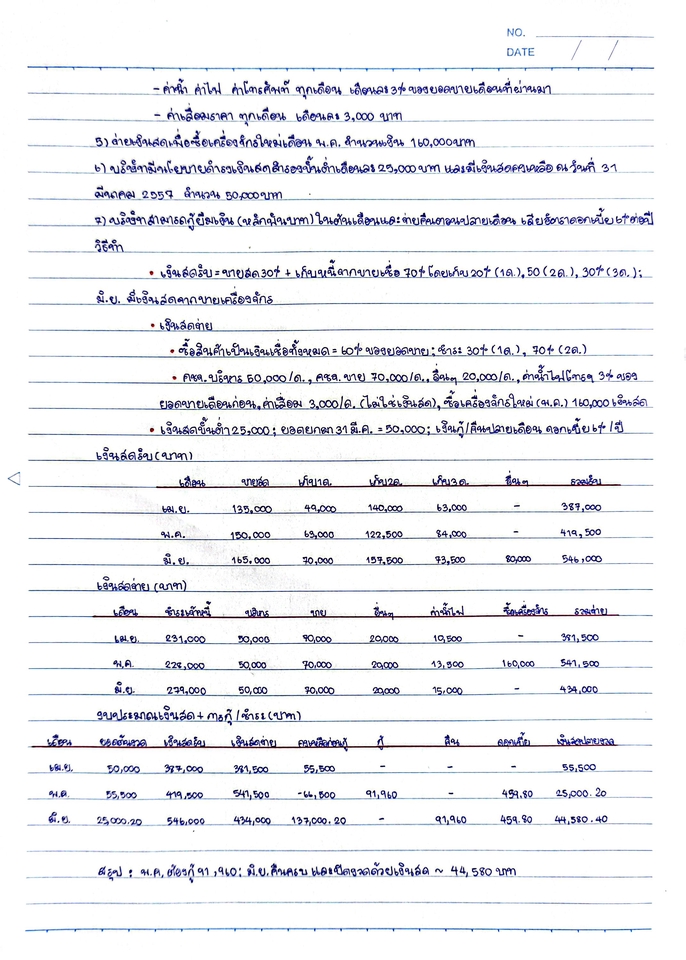 NO.
DATE / /
- ค่าน้ำ ค่าไฟ ค่าโทรศัพท์ ทุกเดือน เดือนละ 3% ของยอดขายเดือนที่ผ่านมา
- ค่าเสื่อมราคา ทุกเดือน เดือนละ 3,000 บาท
5) จ่ายเงินสดเพื่อซื้อเครื่องจักรใหม่เดือน พ.ค. จำนวนเงิน 160,000 บาท
6) บริษัทมีนโยบายดำรงเงินสดสำรองขั้นต่ำเดือนละ 25,000 บาท และมีเงินสดคงเหลือ ณ วันที่ 31
มีนาคม 2557 จำนวน 50,000 บาท
7) บริษัทสามารถกู้ยืมเงิน (หลักพันบาท) ในต้นเดือนและจ่ายคืนตอนปลายเดือน เสียอัตราดอกเบี้ย 6% ต่อปี
วิธีทำ
• เงินสดรับ = ขายสด 30% + เก็บหนี้จากขายเชื่อ 70% โดยเก็บ 20% (1ด.), 50 (2ด.), 30% (3ด.) ;
มิ.ย. มีเงินสดจากขายเครื่องจักร
• เงินสดจ่าย
• ซื้อสินค้าเป็นเงินเชื่อทั้งหมด = 60% ของยอดขาย ; ชำระ 30% (1ด.) , 70% (2ด.)
• คชจ. บริหาร 50,000/ด., คชจ. ขาย 70,000/ด., อื่นๆ 20,000/ด., ค่าน้ำไฟโทรฯ 3% ของ
ยอดขายเดือนก่อน, ค่าเสื่อม 3,000/ด. (ไม่ใช่เงินสด), ซื้อเครื่องจักรใหม่ (พ.ค.) 160,000 เงินสด
• เงินสดขั้นต่ำ 25,000 ; ยอดยกมา 31 มี.ค. = 50,000 ; เงินกู้/คืนปลายเดือน ดอกเบี้ย 6% /ปี
เงินสดรับ (บาท)
เดือน ขายสด เก็บ1ด. เก็บ2ด. เก็บ3ด. อื่นๆ รวมรับ
เม.ย. 135,000 49,000 140,000 63,000 - 387,000
พ.ค. 150,000 63,000 122,500 84,000 - 419,500
มิ.ย. 165,000 70,000 157,500 73,500 80,000 546,000
เงินสดจ่าย (บาท)
เดือน ชำระเจ้าหนี้ บริหาร ขาย อื่นๆ ค่าน้ำไฟ ซื้อเครื่องจักร รวมจ่าย
เม.ย. 231,000 50,000 70,000 20,000 10,500 - 381,500
พ.ค. 228,000 50,000 70,000 20,000 13,500 160,000 541,500
มิ.ย. 279,000 50,000 70,000 20,000 15,000 - 434,000
งบประมาณเงินสด + การกู้ /ชำระ (บาท)
เดือน ยอดต้นงวด เงินสดรับ เงินสดจ่าย คงเหลือก่อนกู้ กู้ คืน ดอกเบี้ย เงินสดปลายงวด
เม.ย. 50,000 387,000 381,500 55,500 - - - 55,500
พ.ค. 55,500 419,500 541,500 -66,500 91,960 - 459.80 25,000.20
มิ.ย. 25,000.20 546,000 434,000 137,000.20 - 91,960 459.80 44,580.40
สรุป : พ.ค. ต้องกู้ 91,960 ; มิ.ย. คืนครบ และปิดงวดด้วยเงินสด ~ 44,580 บาท